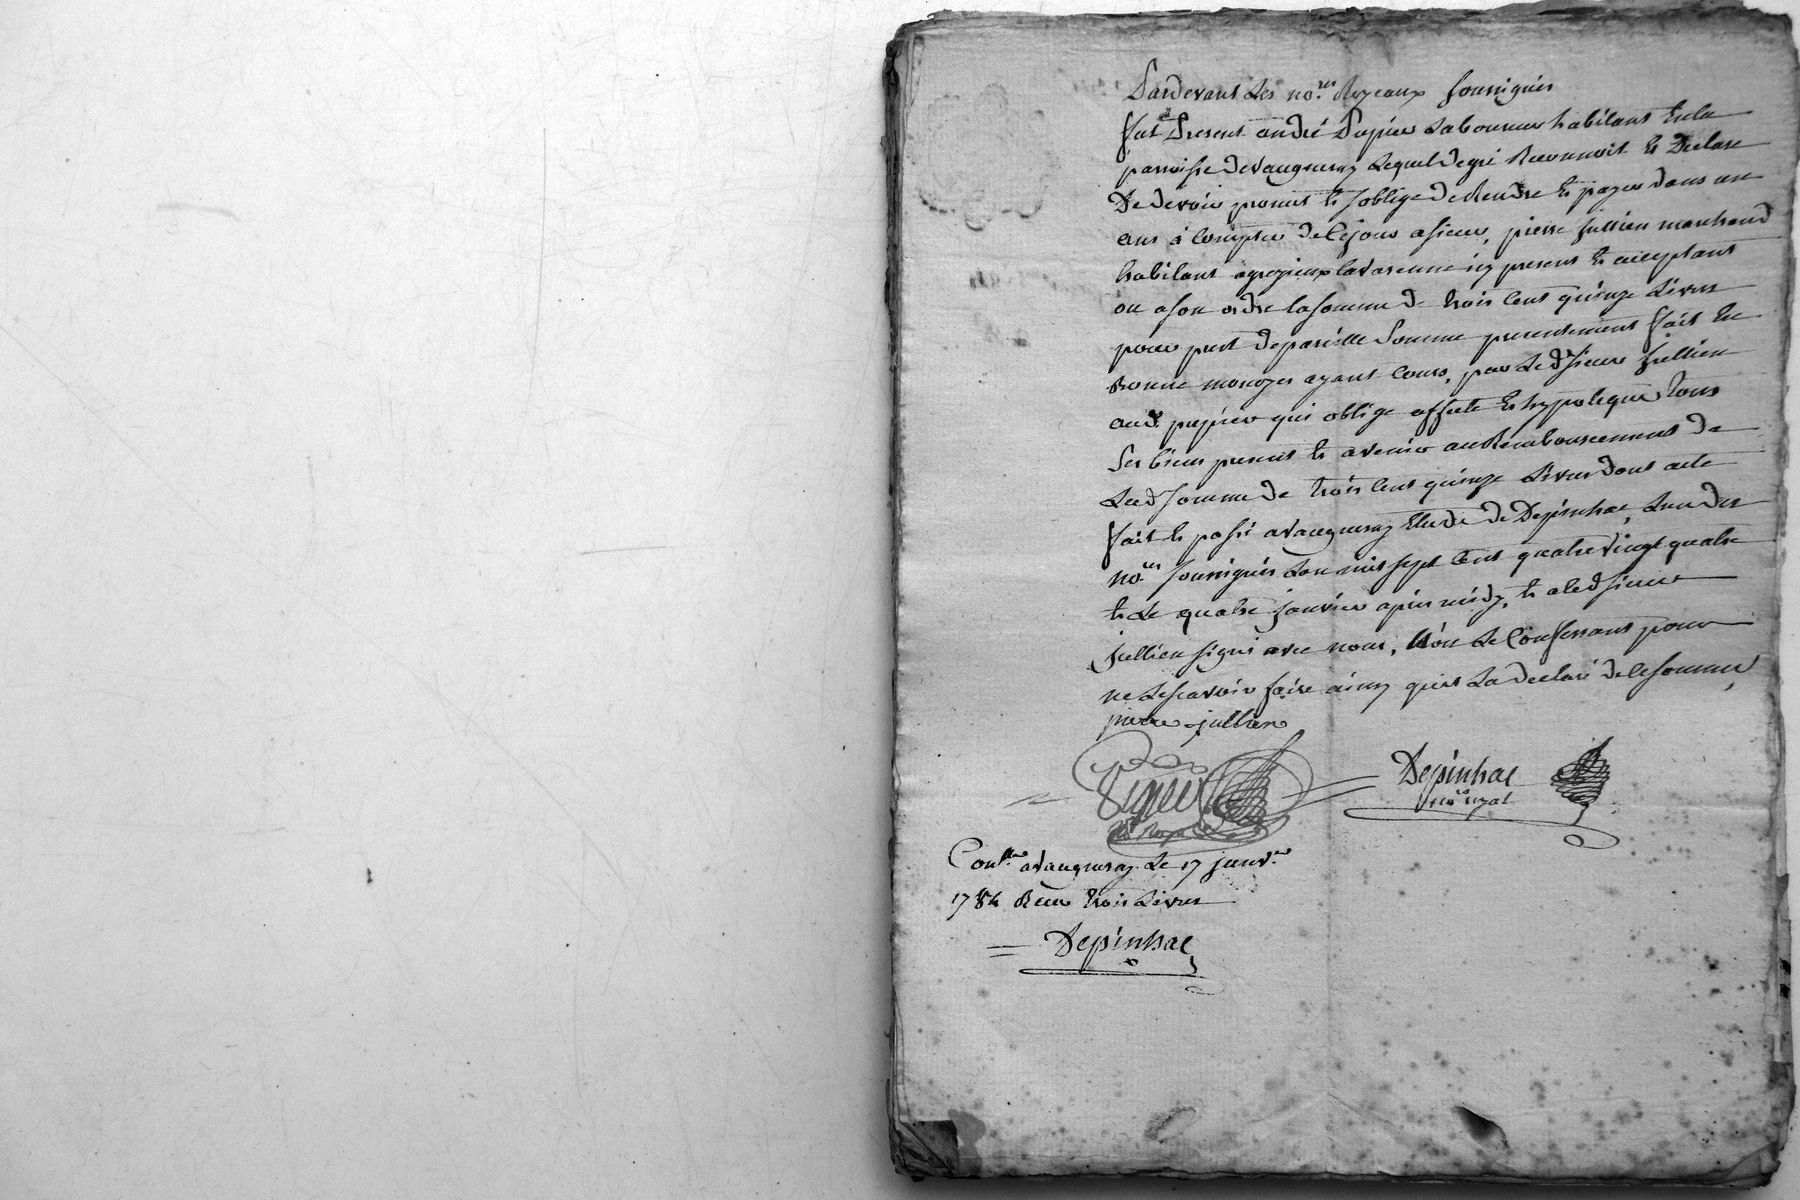 Pardevant Les no.res Royeaux soussignés
fut Present andré Pupier Laboureur habitant En la
parroisse de vaugneray Lequel de gré Reconnoit Et Declare
De devoir promet Et soblige de Rendre Et payer dans un
ans á Compter de Cejour asieur, pierre jullien marchand
habitant agrezieux lavarenne icy present Et acceptant
ou ason ordre lasomme de trois Cent quinze Livres
pour pret de pareille Somme presentement fait En
Bonne monoyes ayant Cours, par Led sieur jullien
aud. pupier qui oblige affecte Et hypoteque tous
Ses biens present Et avenir au Remboursement de
Lad somme de trois Cent quinze Livres dont acte
fait Et passé avaugneray Etude de Depinhac, Lun des
no.res soussignés Lan mil sept Cent quatre vingt quatre
Et Le quatre janvier après midy, Et a led sieur
jullien signé avec nous, Non Le Confessant pour
ne Le scavoir faire ainsy quil La declaré de Ce sommé
pierre jullien
Depinhac
no.re royal
Con.lé avaugneray Le 17 janv.er
1784 Reçu trois Livres
Depinhac